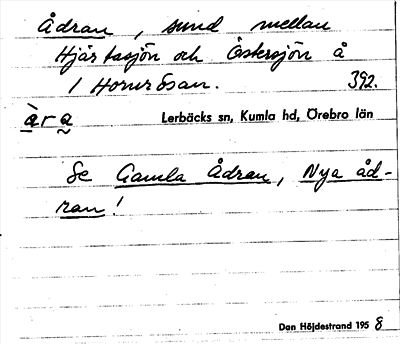 Ådran, sund mellan
Hjärtasjön och Östersjön å
/ Hornrösan. 392.
àr a Lerbäcks sn, Kumla hd, Örebro län
Se Gamla Ådran, Nya åd-
ran!
Dan Höjdestrand 1958